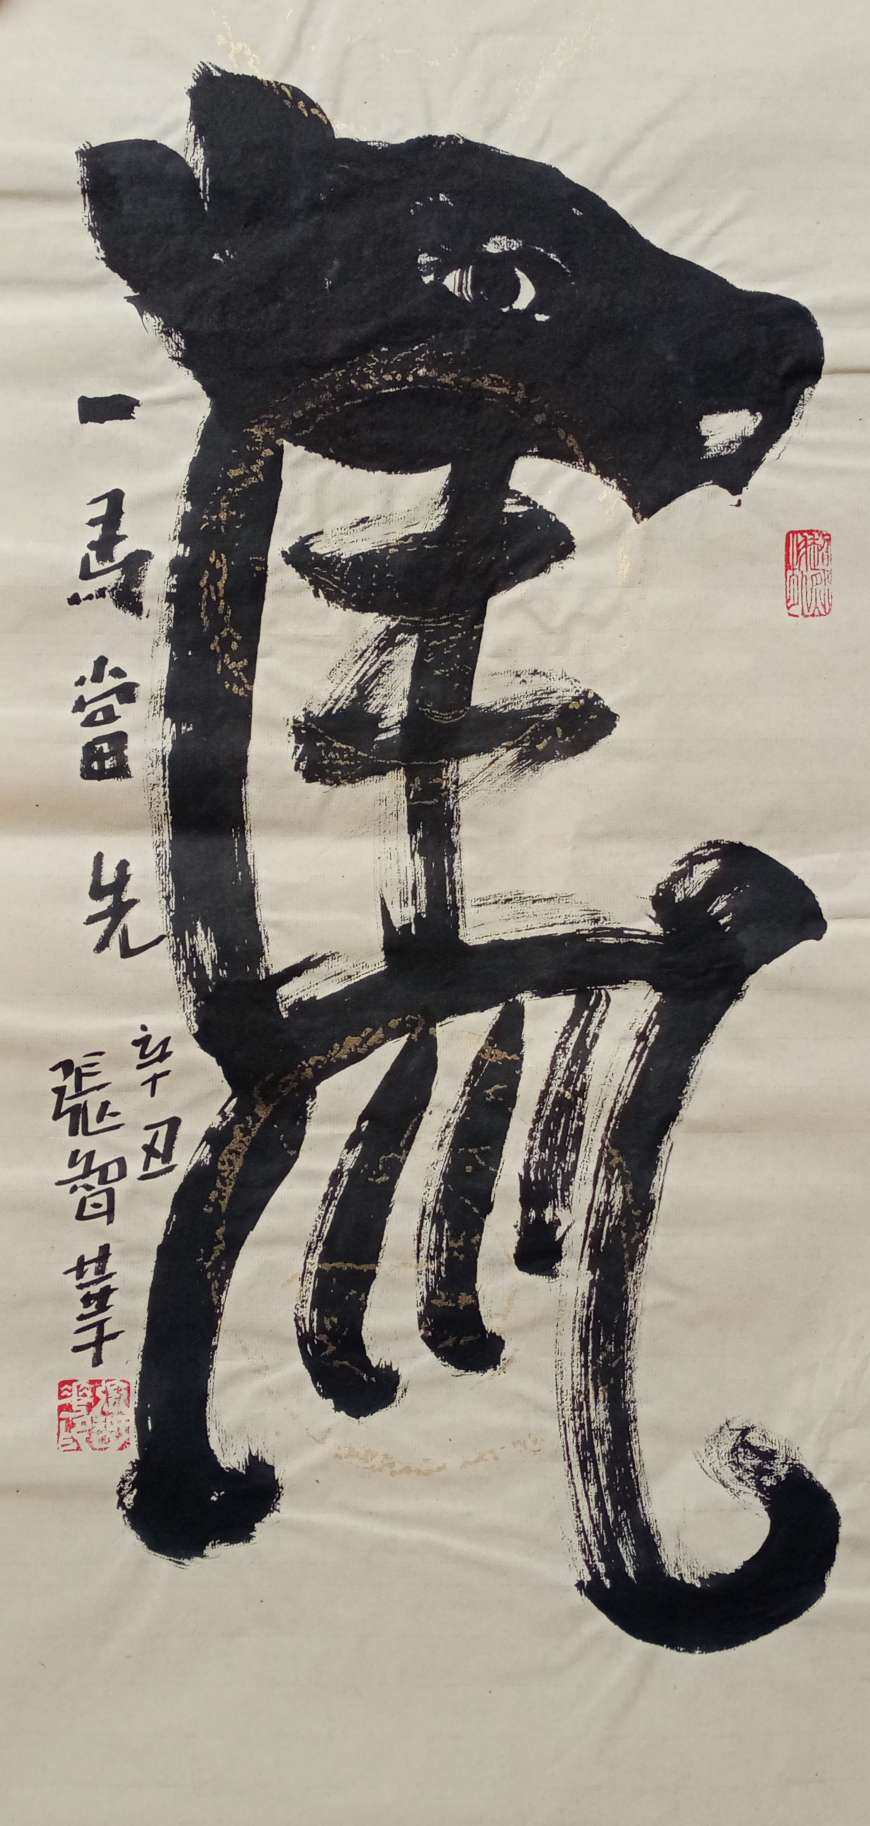 馬
一馬當先
辛丑
張智華